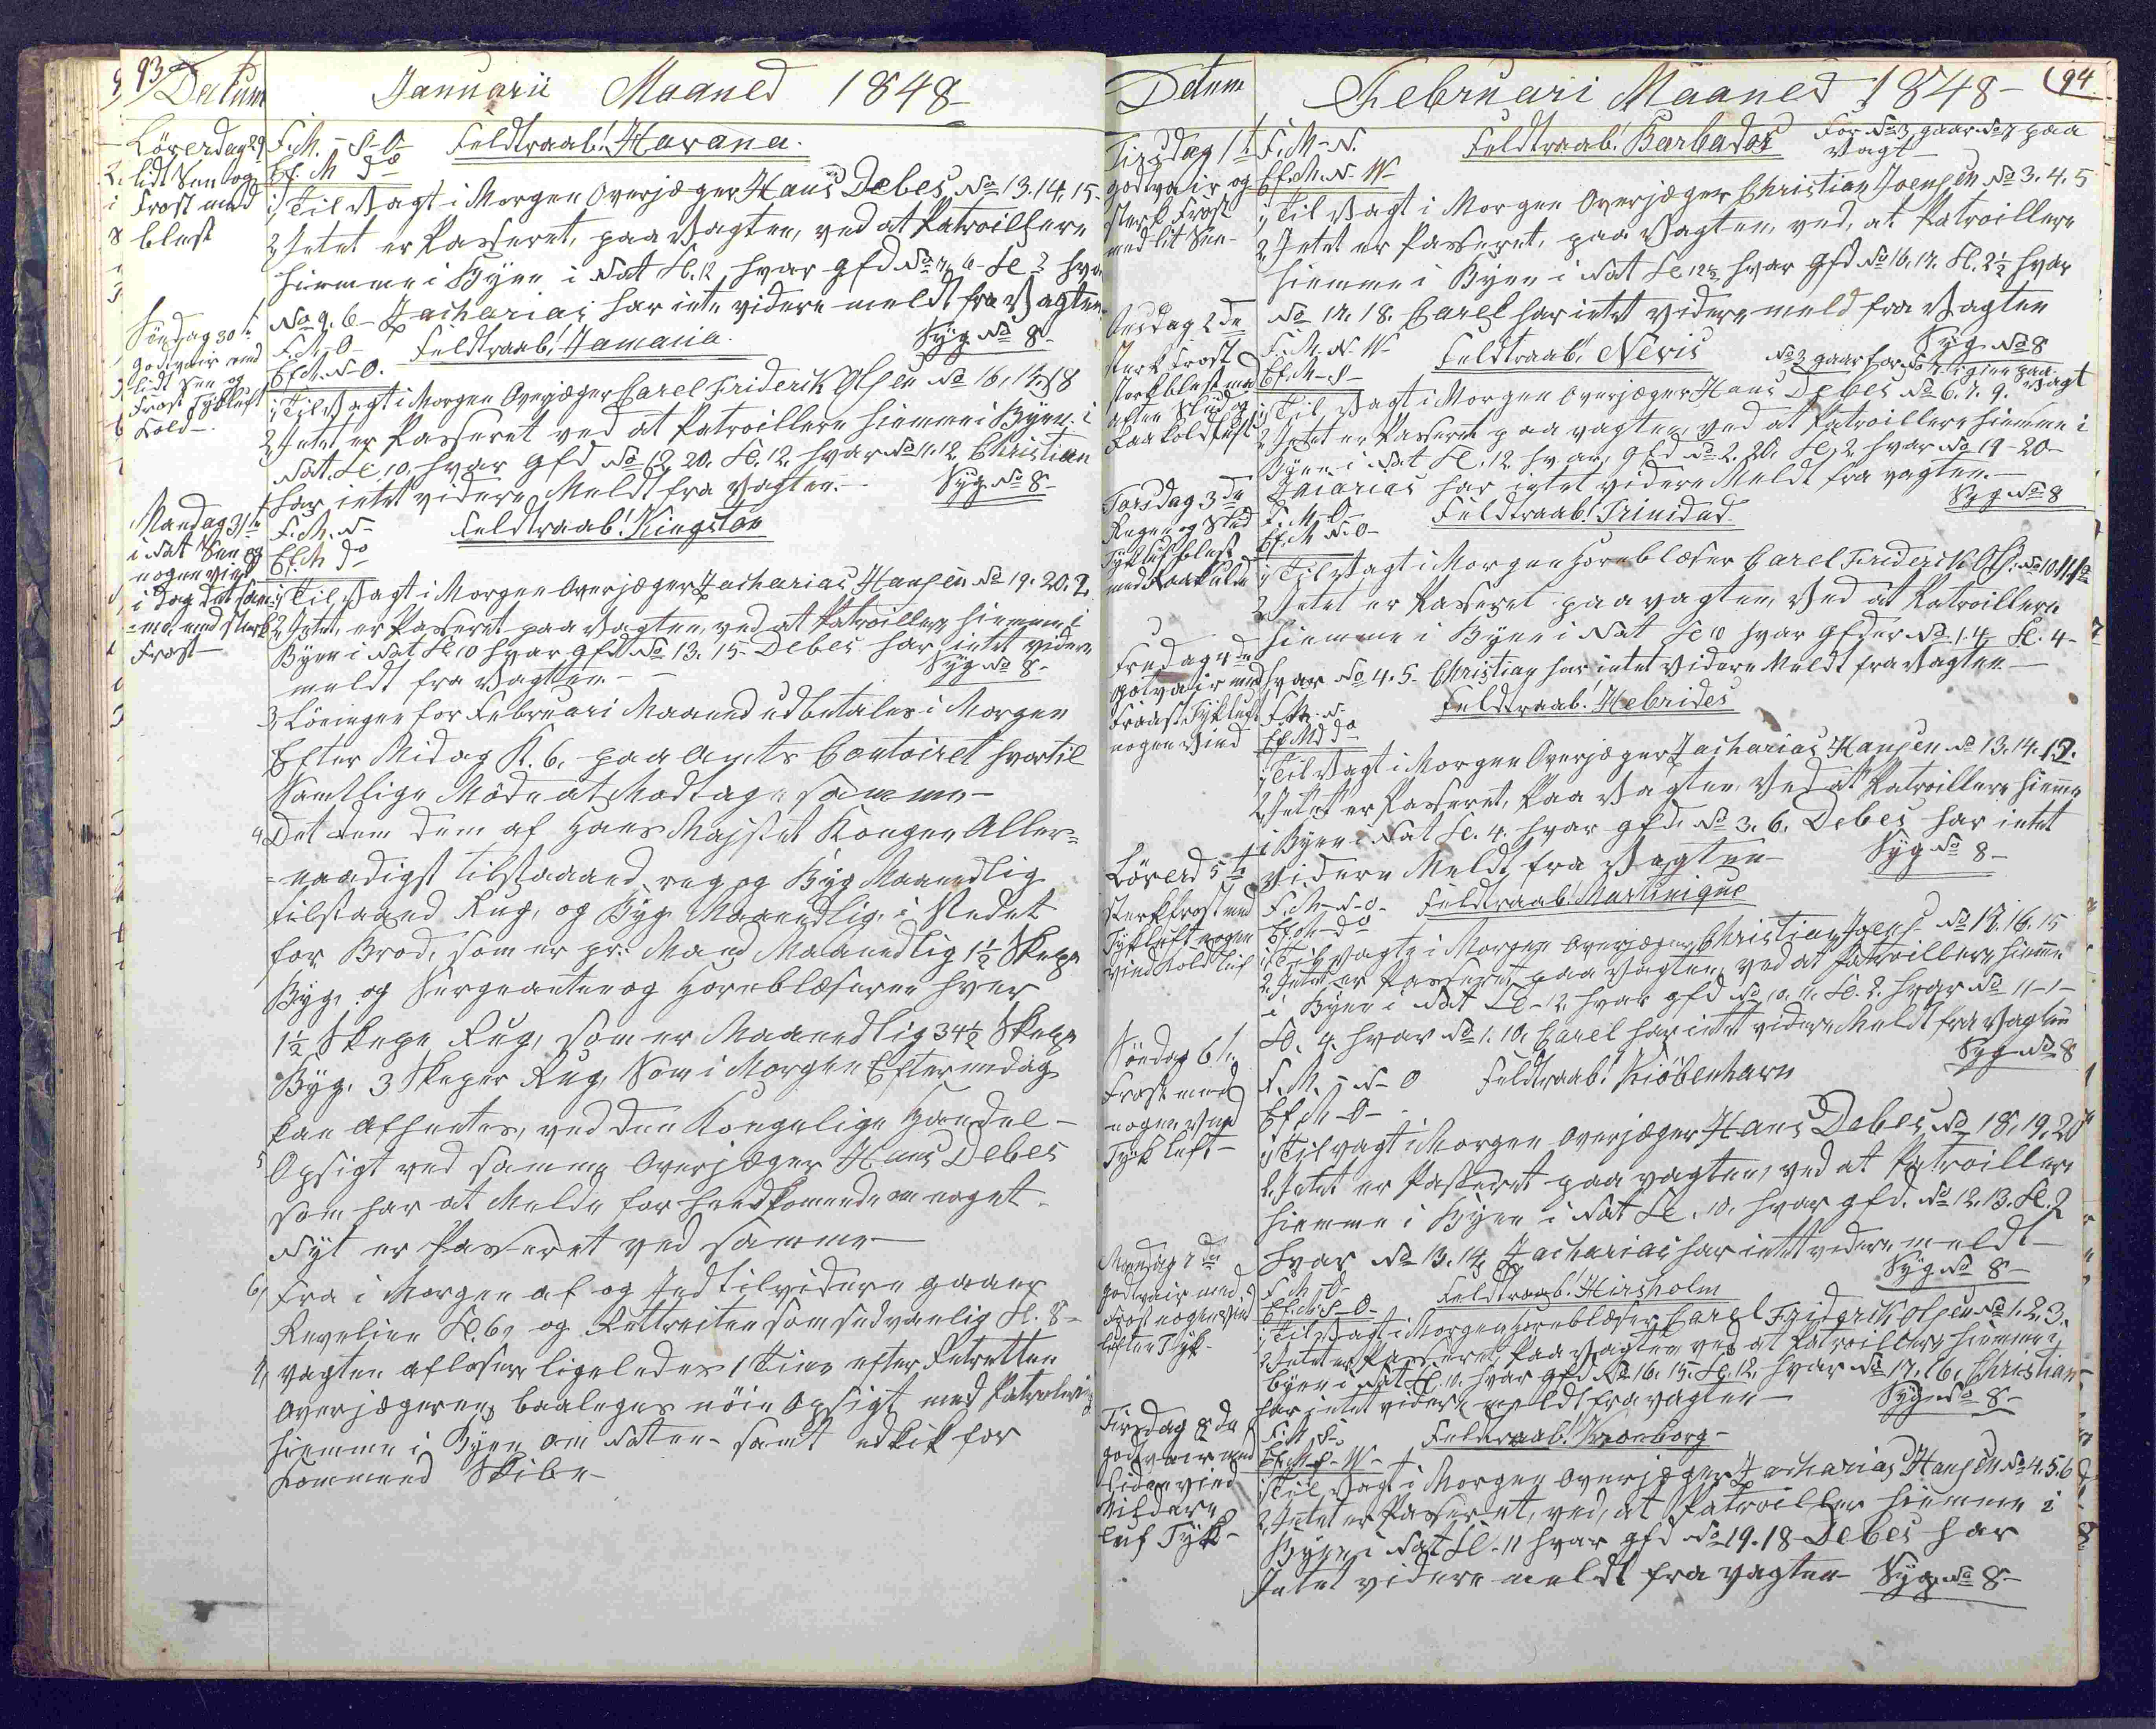 93 Datum Januarii Maaned 1848-
Löverdag 29
lidt Sne og
Frost med
blest
F.M. - S-O- Feldtraab! Havana.
Ef. M do
1, Til Vagt i Morgen Overjæger Hans Debes, No 13. 14. 15.
2, Intet er Passeret, paa Vagten, ved at Patroillere
hiemme i Byen i Nat Kl. 12 hvor gfd No 7, 6- Kl 2 hvor
No 9. 6- Zacharias har inte videre meldt fra Vagten
Syg No 8-
Söndag 30te
godtvair med
lidt Sne og
Frost Tykluft
Kold-
F.M.-O- Feldtraab! Jamaica.
Ef.M.-N-O.
1, Til Vagt i Morgen Overjæger Carel Friderik Olsen No 16, 17, 18
2, Intet er Passeret ved at Patroillere hiemme i Byen i
Nat Kl 10, hvor gfd No 12, 20. Kl. 12. hvor No 11. 12. Christian
har intet videre Meldt fra Vagten.- Syg. No 8-
Mandag 31te
i Nat Sne og
nogen vind
i Dag det sam-
-me med sterk
Frost-
F.M. N- Feldtraab! Kingston
Ef.M do
1, Til Vagt i Morgen Overjæger Zacharias Hansen No 19. 20. 2.
2, Intet, er Passeret paa Vagten, ved at Patroillere hiemme i
Byen i Nat Kl. 10 hvor gfd No 13. 15- Debes har intet videre
meldt fra Vagten- Syg No 8-
3, Löningen for Februari Maaned udbetales i Morgen
Efter Midag K. 6. paa Amts Contoiret hvortil
Samtlige Möde at Modtage samme-
4, Det dem af Hans Majstet Kongen Aller-
=naadigst tilstaaend rug og Byg Maanedlig
tilstaaend Rug, og Byg Maanedlig, i Stedet
for Bröd, som er pr: Mand Maanedlig 1½ Skepe
Byg, og Sergeanten og Hornblæseren hver
1½ Skepe Rug, som er Maanedlig 34½ Skepe
Byg, 3 Skeper Rug, Som i Morgen Eftermidag
kan Afhentes, ved den Kongelige Handel-
5 Opsigt ved samme Overjæger Hans Debes
som har at Melde for henkomende om noget
Nyt er Passeret ved samme-
6, Fra i Morgen af og Indtilvidere gaaer
Revelien Kl. 6, og Rettreiten som sedvanlig Kl. 8-
7, Vagten afloses ligeledes 1 Time efter Retretten
Overjægerne, paaleges nöie Opsigt med Patrolering
hiemme i Byen om Natten- samt udkik for
kommend Skibe-
Datum Februari Maaned 1848- 94
Tirsdag 1te
godtvair og
sterk Frost
med lit Sne-
F.M-N. Feldtraab! Barbados For No 3 gaar No 7 paa
Vagt-
Ef.M.N-W-
1, Til Vagt i Morgen Overjæger Christian Joensen No 3. 4. 5
2, Intet er Passeret, paa Vagten, ved, at Patroillere
hiemme i Byen i Nat Kl 12½ hvor gfd No 16, 17. Kl. 2½ hvor
No 17. 18. Carel har intet videre meld fra Vagten
Syg No 8
Onsdag 2de
sterk Frost
sterk blest med
aften Slud og
Raakold luft
F.M-N-W- Feldtraab! Nevis No 3 gaar for No 7 igien paa
Vagt
Ef.M-S-
1, Til Vagt i Morgen Overjæger Hans Debes No 6. 7. 9.
2, Intet er Passeret paa vagten, ved at Patroillere hiemme i
Byen i Nat Kl. 12 hvor, gfd No 2. 20. Kl 2 hvor No 19-20-
Zacarias har intet videre Meldt fra vagten.-
Syg No 8
Torsdag 3de
Regen og Slud
Tykluft blest
med Raakulde
F.M-O- Feldtraab! Trinidad
Ef.M N-O-
1, Til Vagt i Morgen Hornblæser Carel Friderik Ols: No 10. 11. 12
2, Intet er Passeret paa vagten, Ved at Patroillere
hiemme i Byen i Nat Kl 10 hvor gfder No 1. 4 Kl. 4-
hvor No 4. 5- Christian har intet Videre Meldt fra Vagten-
Fredag 4de
gotvair med
Fraast Tykluft
nogen Vind
F.M.-N- Feldtraab! Hebrides
Ef.Md do
1, Til Vagt i Morgen Overjæger Zacharias Hansen No 13. 14. 12.
2, Intet er Passeret, Paa Vagten, Ved at Patroillere hieme
i Byen i Nat Kl. 4. hvor gfd. No 3. 6. Debes har intet
videre Meldt fra Vagten- Syg No 8-
Löverd 5te
sterkfrost med
Tykluft nogen
vind Kold luf
F.M-N-O- Feldtraab! Martinique
Ef.M-do
1, Til Vagt i Morgen Overjæger Christian Joens- No 17. 16. 15
2, Intet er Passeret paa Vagten, ved at Patroillere hieme
i Byen i Nat Kl-12, hvor gfd No 10. 11. Kl. 2. hvor No 11-1-
Kl. 4. hvor No 1. 10, Carel har intet videre Meldt fra Vagten
Syg No 8
Söndag 6te
Frost med
nogen Vind
Tyk luft-
F.M.-N-O Feldtraab! Kiöbenhavn
Ef.M-O-
1, Til vagt i Morgen Overjæger Hans Debes, No 18, 19, 20
2, Intet er Passeret paa vagten, ved at Patroillere
hiemme i Byen i Nat Kl. 10. hvor gfd. No 12. 13. Kl. 2
hvor No 13. 14, Zacharias har intet videre meldt-
Syg No 8-
Mandag 7de
godtvair med
Frost nogen Vind
luften Tyk-
F.M-O- Feldtraab! Hirsholm
Ef.M.S-O-
1, Til Vagt i Morgen Hornblæser Carel Friderik Olsen No 1. 2. 3.
2, Intet er Passeret, Paa Vagten ved at Patroillere hiemme i
byen i Nat Kl. 10. hvor gfd No 16. 15- Kl. 12. hvor No 17. 16. Christian
har intet videre meldt fra vagten- Syg No 8-
Tirsdag 8de
godtvair med
liden vind
Mildere
luf Tyk-
F.M-S- Feldtraab! Kronborg-
Ef.M S-W-
1, Til Vagt i Morgen Overjæger Zacharias Hansen No 4. 5. 6
2, Intet er Passeret, ved, at Patroiller hiemme i
Byen i Nat Kl-11 hvor gfd No 19. 18 Debes har
Intet videre meldt fra vagten Syg No 8-